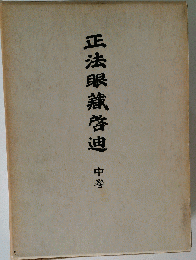 正法眼蔵啓迪
中巻